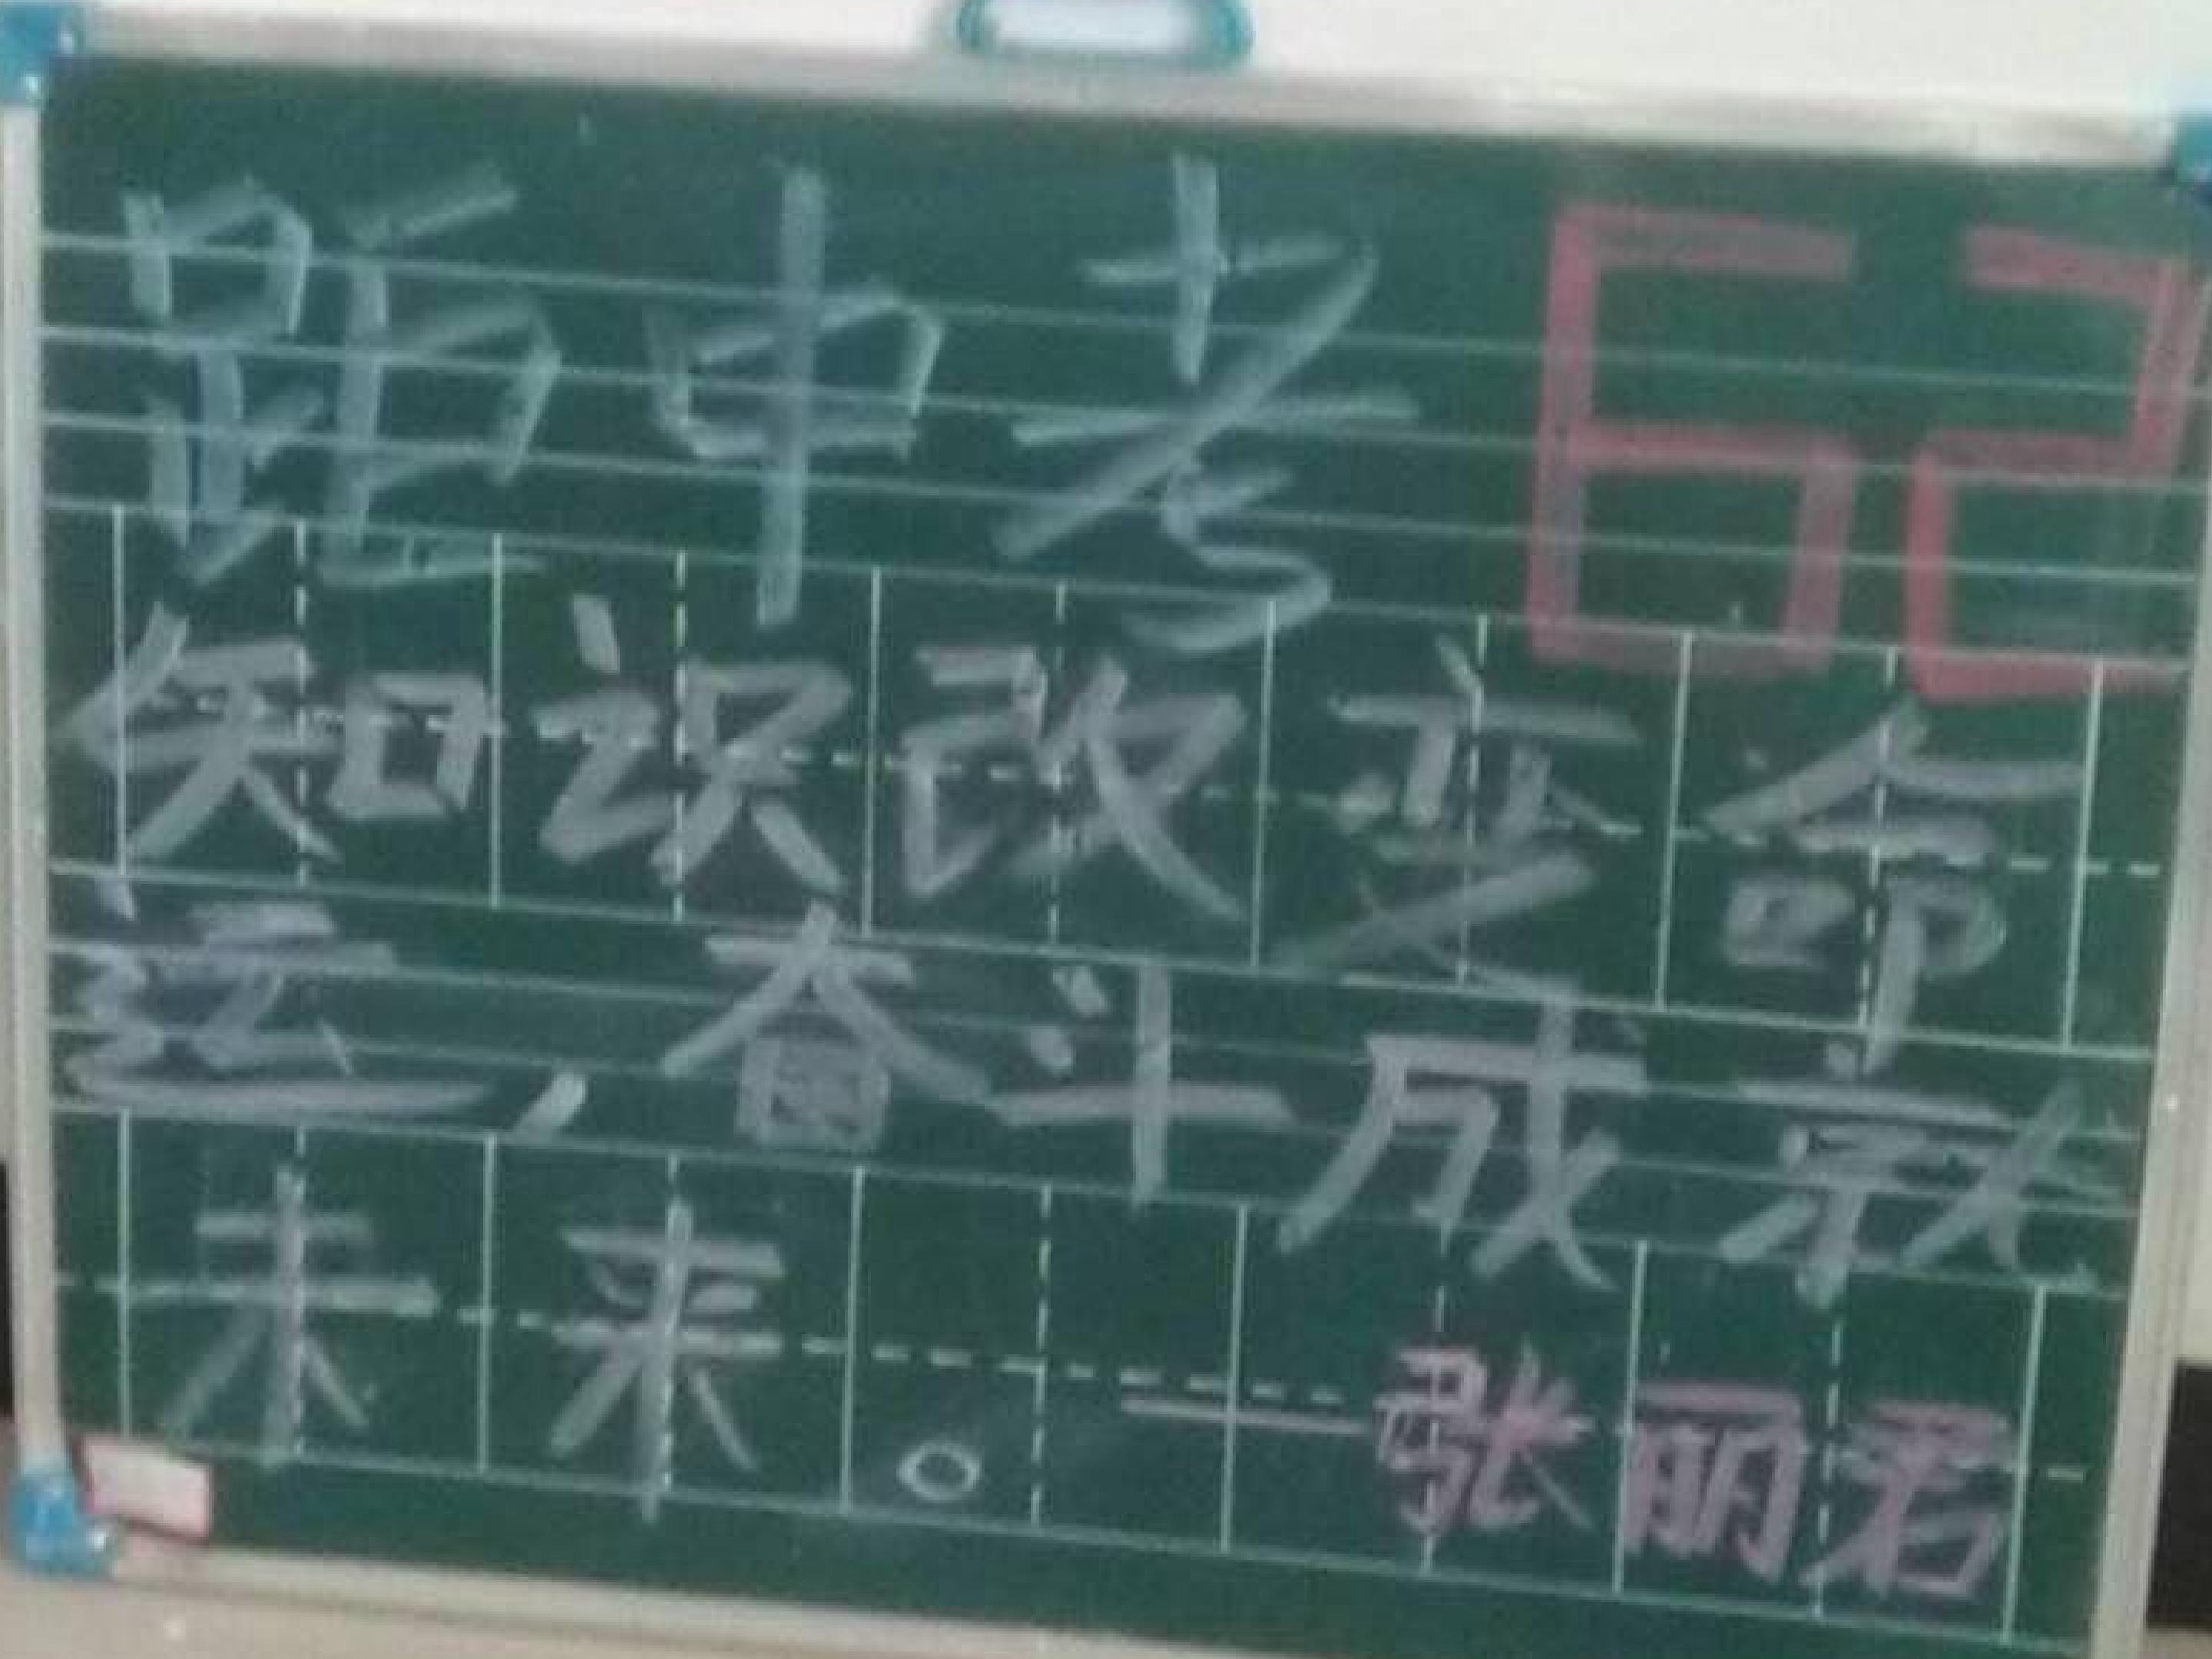 距中考 62
知识改变命
运,奋斗成就
未来。
—张丽君